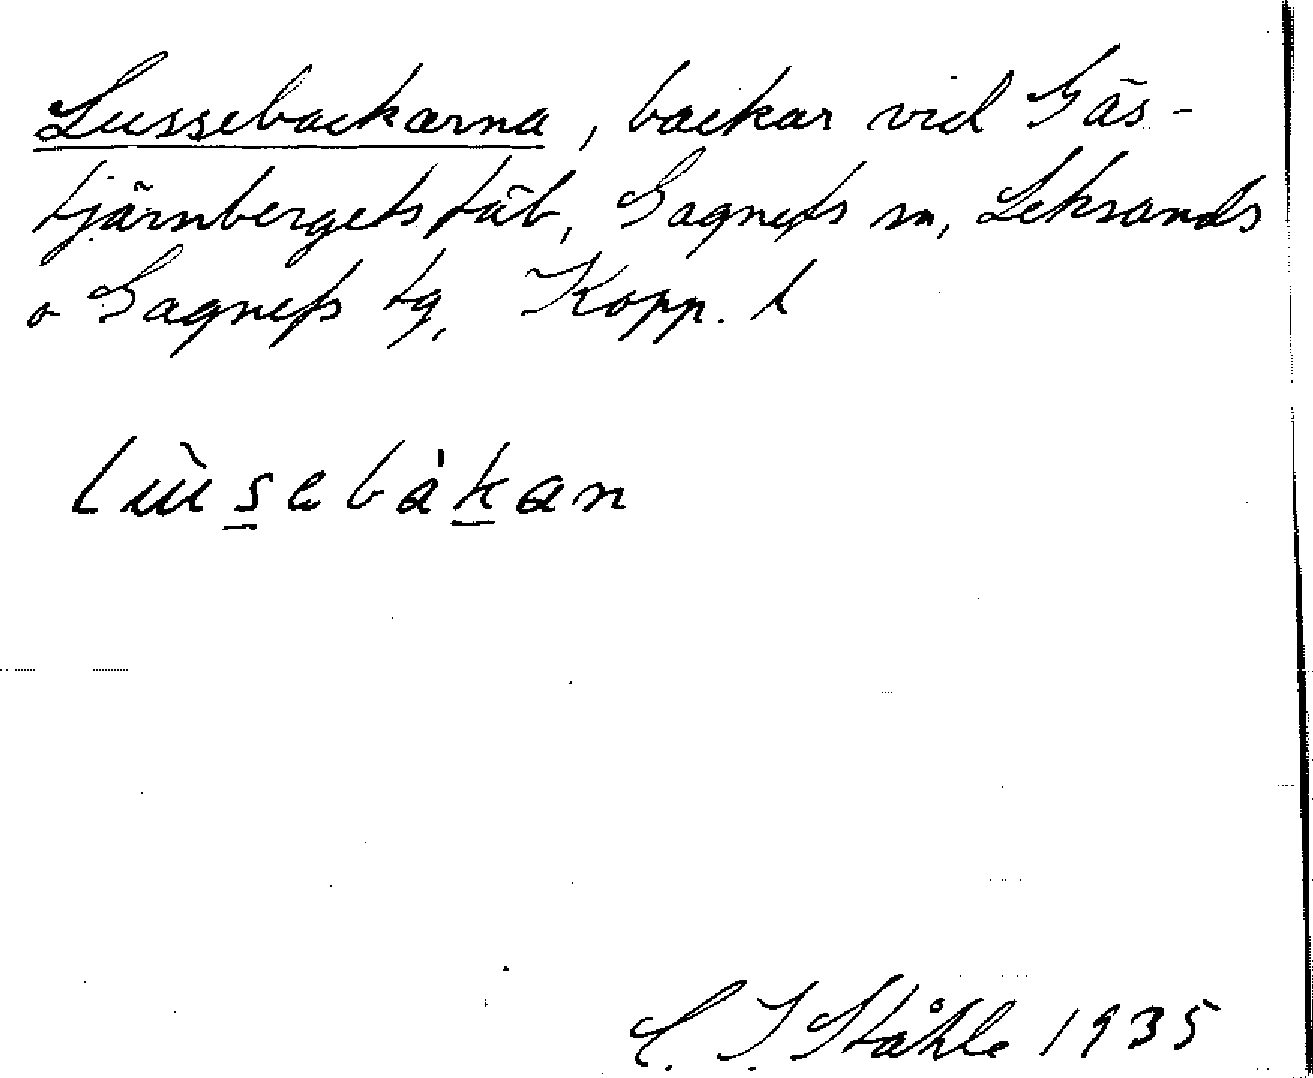 Lussebackarna, backar vid Gäs-
tjärnbergets fäb, Gagnefs sn, Leksands
o Gagnefs tg, Kopp. l
lùsebàkan
C. I. Ståhle 1935